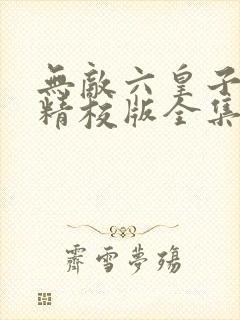 無敵六皇子
精校版全集
霽雪夢殤